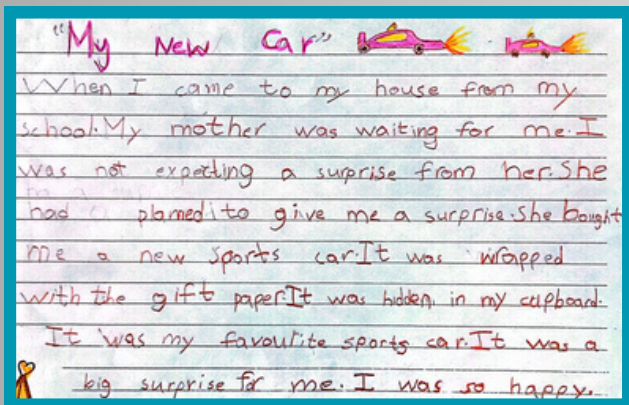 "My New Car"
When I came to my house from my
school.My mother was waiting for me.I
was not expecting a surprise from her.She
had planned to give me a surprise.She bought
me a new sports car.It was wrapped
with the gift paper.It was hidden in my cupboard.
It was my favourite sports car.It was a
big surprise for me.I was so happy.